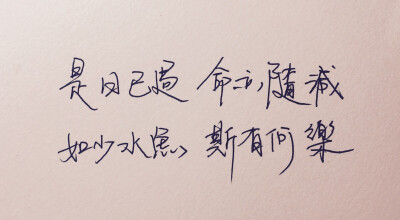 是日已過 命亦隨減
如少水魚 斯有何樂